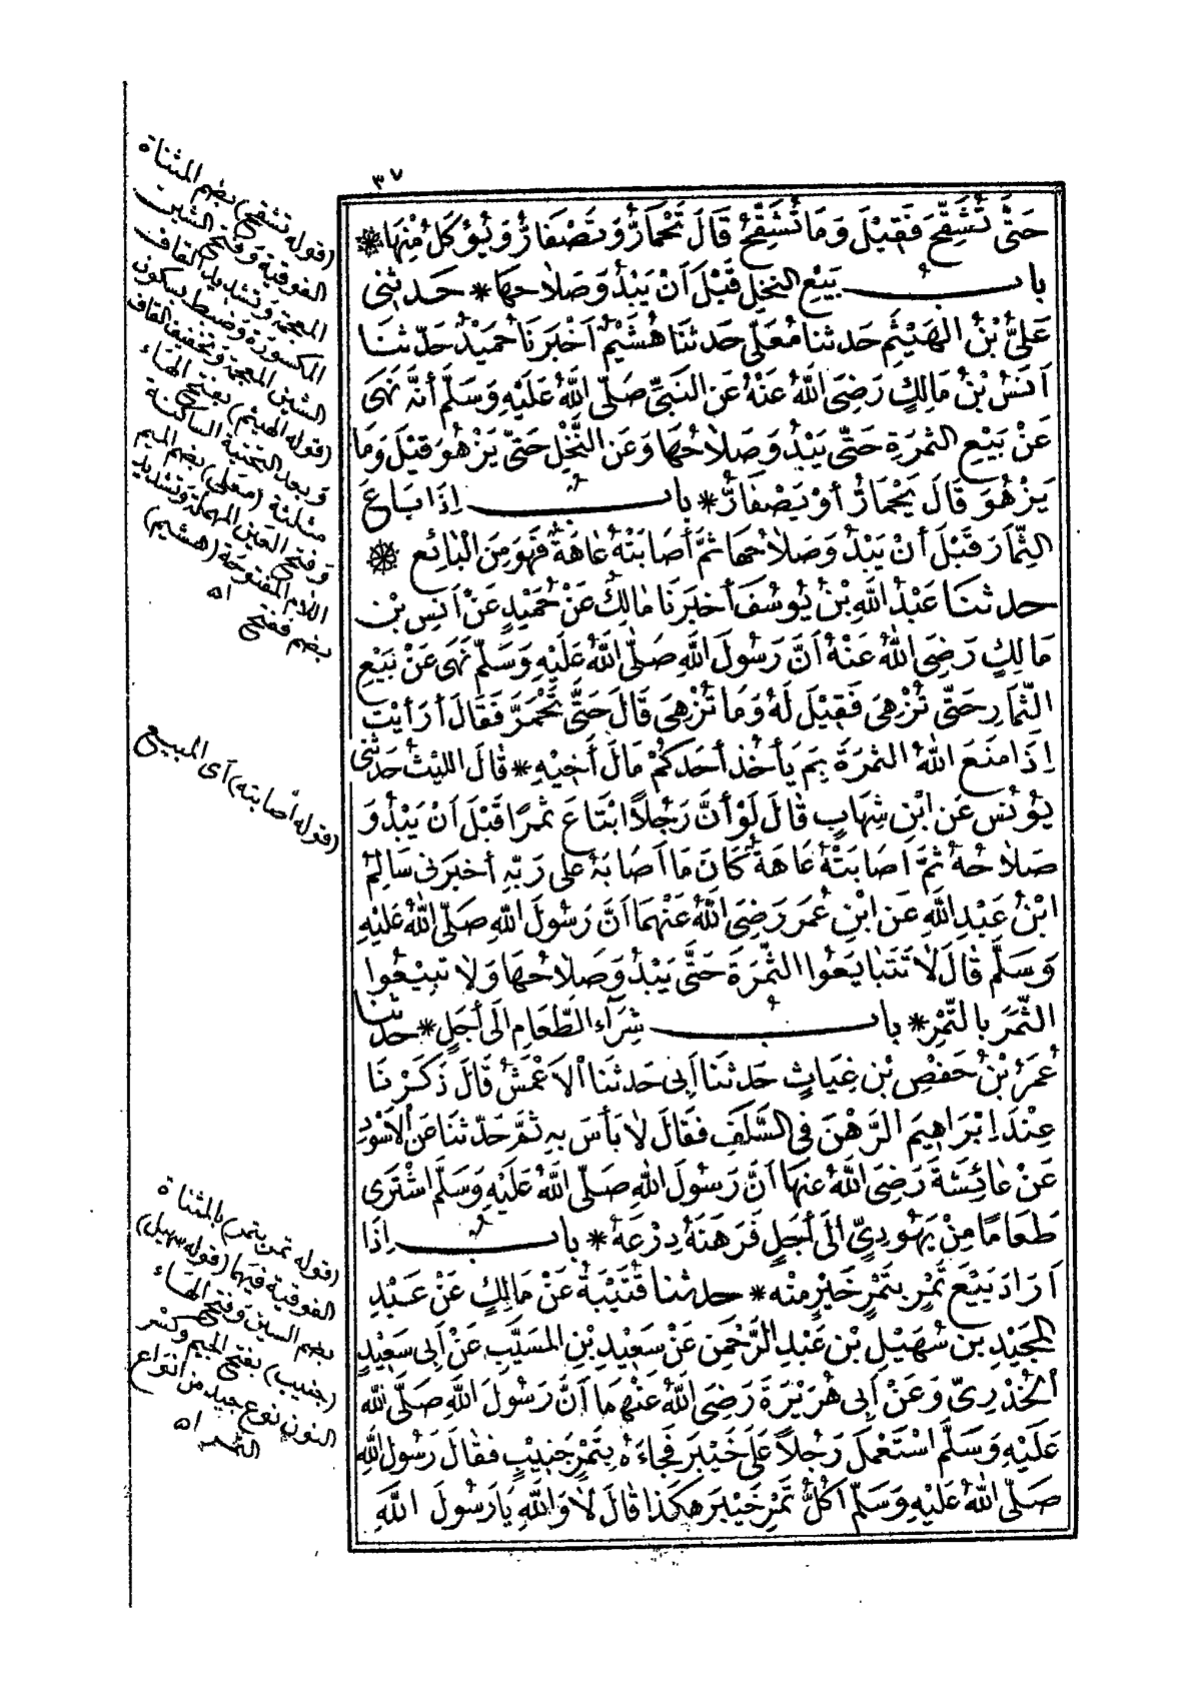 ٣٧
حَتَّى تُشَقِّحَ فَقِيْلَ وَمَا تُشَقِّحُ قَالَ تَحْمَارُّ وَتَصْفَارُّ وَيُؤْكَلُ مِنْهَا *
باب بَيْعِ النخلِ قَبْلَ أَنْ يَبْدُوَ صَلَاحُهَا * حَدثنى
عَلِىُّ بْنُ الهَيْثَمِ حَدثنا مُعَلَّى حَدثنَا هُشَيْمٌ أَخْبَرَنَا حُمَيْدٌ حَدّثنَا
أَنَسُ بْنُ مَالِكٍ رَضِىَ اللّٰهُ عَنْهُ عَنِ النَّبِىِّ صَلَّى اللّٰهُ عَلَيْهِ وَسَلَّمَ أَنَّهُ نَهَى
عَنْ بَيْعِ الثمرَةِ حَتَّى يَبْدُوَ صَلَاحُهَا وَعَنِ النَّخْلِ حَتَّى يَزْهُوَ قِيْلَ وَمَا
يَزْهُوَ قَالَ يَحْمَارُّ أَوْ يَصْفَارُّ * باب إِذَا بَاعَ
الثِّمَارَ قَبْلَ أَنْ يَبْدُوَ صَلَاحُهَا ثمَّ أَصَابَتْهُ عَاهَةٌ فَهُوَ مِنَ الْبَائِعِ *
حدثنَا عَبْدُ اللّٰهِ بْنُ يُوسُفَ أَخبَرَنَا مَالِكٌ عَنْ حُمَيْدٍ عَنْ أَنَسِ بْنِ
مَالِكٍ رَضِىَ اللّٰهُ عَنْهُ أَنَّ رَسُولَ اللّٰهِ صَلَّى اللّٰهُ عَلَيْهِ وَسَلَّمَ نَهَى عَنْ بَيْعِ
الثِّمَارِ حَتَّى تُزْهِىَ فَقِيْلَ لَهُ وَمَا تُزْهِىَ قَالَ حَتَّى تَحْمَرَّ فَقَالَ أَرَأَيْتَ
إِذَا مَنَعَ اللّٰهُ الثمرَةَ بِمَ يَأخُذ أحَدكُمْ مَالَ أَخِيْهِ * قَالَ الليْثُ حَدثنى
يُوْنُس عَنِ ابْنِ شِهَابٍ قَالَ لَوْ أَنَّ رَجُلاً ابْتَاعَ ثمرًا قَبْلَ أَنْ يَبْدُوَ
صَلَاحُهُ ثمَّ أَصَابَتْهُ عَاهَةٌ كَانَ مَا أَصَابَهُ عَلى رَبّهِ أخبَرَنى سَالِمُ
ابْنُ عَبْدِ اللّٰهِ عَنِ ابْنِ عُمَرَ رَضِىَ اللّٰهُ عَنْهُمَا أَنَّ رَسُولَ اللّٰهِ صَلَّى اللّٰهُ عَلَيْهِ
وَسَلَّمَ قَالَ لَا تَتَبَايَعُوا الثَّمَرَةَ حَتَّى يَبْدُوَ صَلَاحُهَا وَلَا تَبِيْعُوا
الثَّمَرَ بِالتَّمْرِ * باب شِرَآءِ الطَّعَامِ إلَى أَجَلٍ * حَدثنا
عُمَرُ بْنُ حَفْصِ بْنِ غِيَاثٍ حَدثنَا أَبِى حَدثنَا الْأَعْمَشُ قَالَ ذَكَرْنَا
عِنْدَ إِبْرَاهِيمَ الرَّهْنَ فِى السَّلَفِ فَقَالَ لَا بَأْسَ بِهِ ثمَّ حَدّثنَا عَنِ الْأَسْوَدِ
عَنْ عَائِشَةَ رَضِىَ اللّٰهُ عَنهَا أَنَّ رَسُولَ اللّٰهِ صَلَّى اللّٰهُ عَلَيْهِ وَسَلَّمَ اشْتَرَى
طَعَامًا مِنْ يَهُودِىٍّ إلَى أَجَلٍ فَرَهَنَهُ دِرْعَهُ * باب إِذَا
أَرَادَ بَيْعَ تَمْرٍ بِتَمْرٍ خَيْرٍ مِنْه * حدثنا قُتَيْبَةُ عَنْ مَالِكٍ عَنْ عَبْدِ
المَجِيْدِ بن سُهَيْلِ بْنِ عَبْدِ الرَّحْمٰنِ عَنْ سَعِيْدِ بْنِ المسَيَّبِ عَنْ أَبِى سَعِيْدٍ
الْخُدْرِىّ وَعَنْ أَبِى هُرَيْرَةَ رَضِىَ اللّٰهُ عَنْهُمَا أَنَّ رَسُولَ اللّٰهِ صَلَّى اللّٰهُ
عَلَيْهِ وَسَلَّمَ اسْتَعْمَلَ رَجُلاً عَلَى خَيْبَرَ فَجَاءَهُ بِتَمْرٍ جَنِيْبٍ فَقَالَ رَسُولُ اللّٰهِ
صَلَّى اللّٰهُ عَلَيْهِ وَسَلَّمَ أَكُلُّ تَمْرِ خَيْبَرَ هكَذَا قَالَ لَا وَاللّٰهِ يَا رَسُولَ اللّٰهِ
(قوله تشقح) بضم المثناة
الفوقية وفتح الشين
المعجمة وتشديد القاف
المكسورة وضبط بسكون
الشين المعجمة وتخفيف القاف
(قوله الهيثم) بفتح الهاء
وبعد التحتية الساكنة
مثلثة (معلى) بضم الميم
وفتح العين المهملة وتشديد
اللام المفتوحة (هشيم)
بضم ففتح اه
(قوله أصابته) أى المبيع
(قوله تمر بتمر) بالمثناة
الفوقية فيهما (قوله سهيل)
بضم السين وفتح الهاء
(جنيب) بفتح الجيم وكسر
النون نوع جيد من أنواع
التمر اه